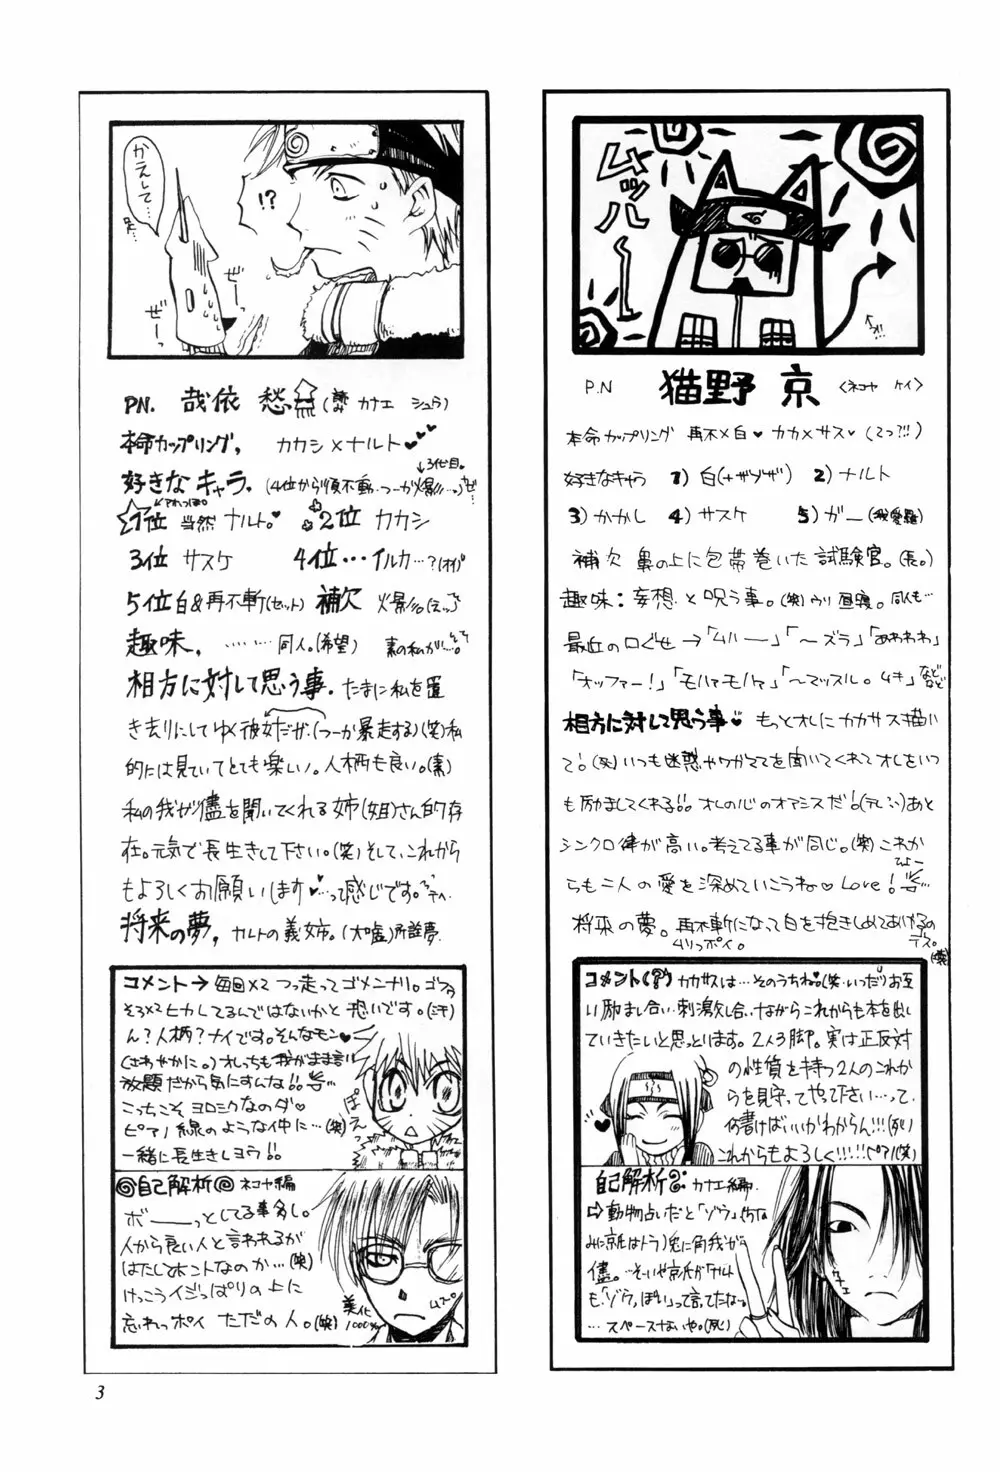 P.N
猫野 京
<ネコヤ ケイ>
本命カップリング 再不×白♥ カカ×サス♥ (てっ?!!)
好きなキャラ 1)白(+ザブザ) 2)ナルト
3)かかし 4)サスケ 5)ガー(我愛羅)
補欠 鼻の上に包帯巻いた試験官。(長。)
趣味:妄想と呪う事。(笑)ウリ 昼寝。同人…
最近の口ぐせ→「ムハー」「〜ズラ」「あわわわ」
「オッファー!」「モハァモハァ」「〜マッスル。ムキ」などなど
相方に対して思う事♥ もっとオレにカカサス描い
て!(笑)いつも迷惑やワガママを聞いてくれてオレをいつ
も励ましてくれる!!オレの心のオアシスだ!(テレ)あと
シンクロ律が高い。考えてる事が同じ。(笑)これか
らも二人の愛を深めていこうね♡Love!
将来の夢。再不斬になって白を抱きしめてあげるの
デス。(笑)
ムリっポイ。
コメント(?) カカサスは…そのうちね♥(笑)いつだりお互
い励まし合い刺激し合いながらこれからも本を出し
ていきたいと思っとります。2人3脚。実は正反対
の性質を持つ2人のこれか
らを見守ってやって下さい…って、
何書けばいいかわからん!!!(死)
これからもよろしく!!!!!(ピアノ)(笑)
自己解析 カナエ編
⇨動物占いだと「ゾウ」(ちな
みに京はトラ)兎に角我が
儘。…そいや京氏がナルト
も「ゾウっぽい」って言ってたな。
…スペースないや。(死)
かえして…
!?
ぜーっ
ぜーっ
PN. 哉依 愁
(カナエ シュウ)
本命カップリング, カカシ×ナルト♥♥
↓3代目。
好きなキャラ。(4位から順不動…つーか火影!!…)
1位 当然 ナルト。♥ 2位 カカシ
3位 サスケ 4位…イルカ…?(オイ)
5位 白&再不斬(セット) 補欠 火影
趣味, ………同人。(希望) 素の私が!…
相方に対して思う事. たまに私を置
き去りにしてゆく彼女だが、(つーか暴走する)(笑)私
的には見ていてとても楽しい。人柄も良い。(素)
私の我が儘を聞いてくれる姉(姐)さん的存
在。元気で長生きして下さい。(笑)そして、これから
もよろしくお願いします♥…って感じです。
将来の夢, ナルトの義姉。(大嘘)所詮夢。
コメント→毎回×2 つっ走ってゴメンナリ。ゴファ
そろ×2ヒカレてるんではないかと恐いです。(汗)
ん?人柄?ナイです。そんなモン♥
(さわやかに。)オレっちも我がまま言い
放題だから気にすんな!!
こっちこそ ヨロシクなのダ♡
ピアノ線のような仲に…(笑)
一緒に長生きしヨウ!!
ぽえっ
自己解析 ネコヤ編
ボーーっとしてる事多し。
人から良い人と言われるが
はたしてホントなのか…(笑)
けっこうイジっぱりの上に
忘れっポイ ただの人。(笑)
美化
1000%
ムフ゜
3